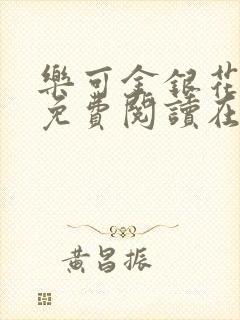 樂可金銀花
免費閱讀在
黃昌振